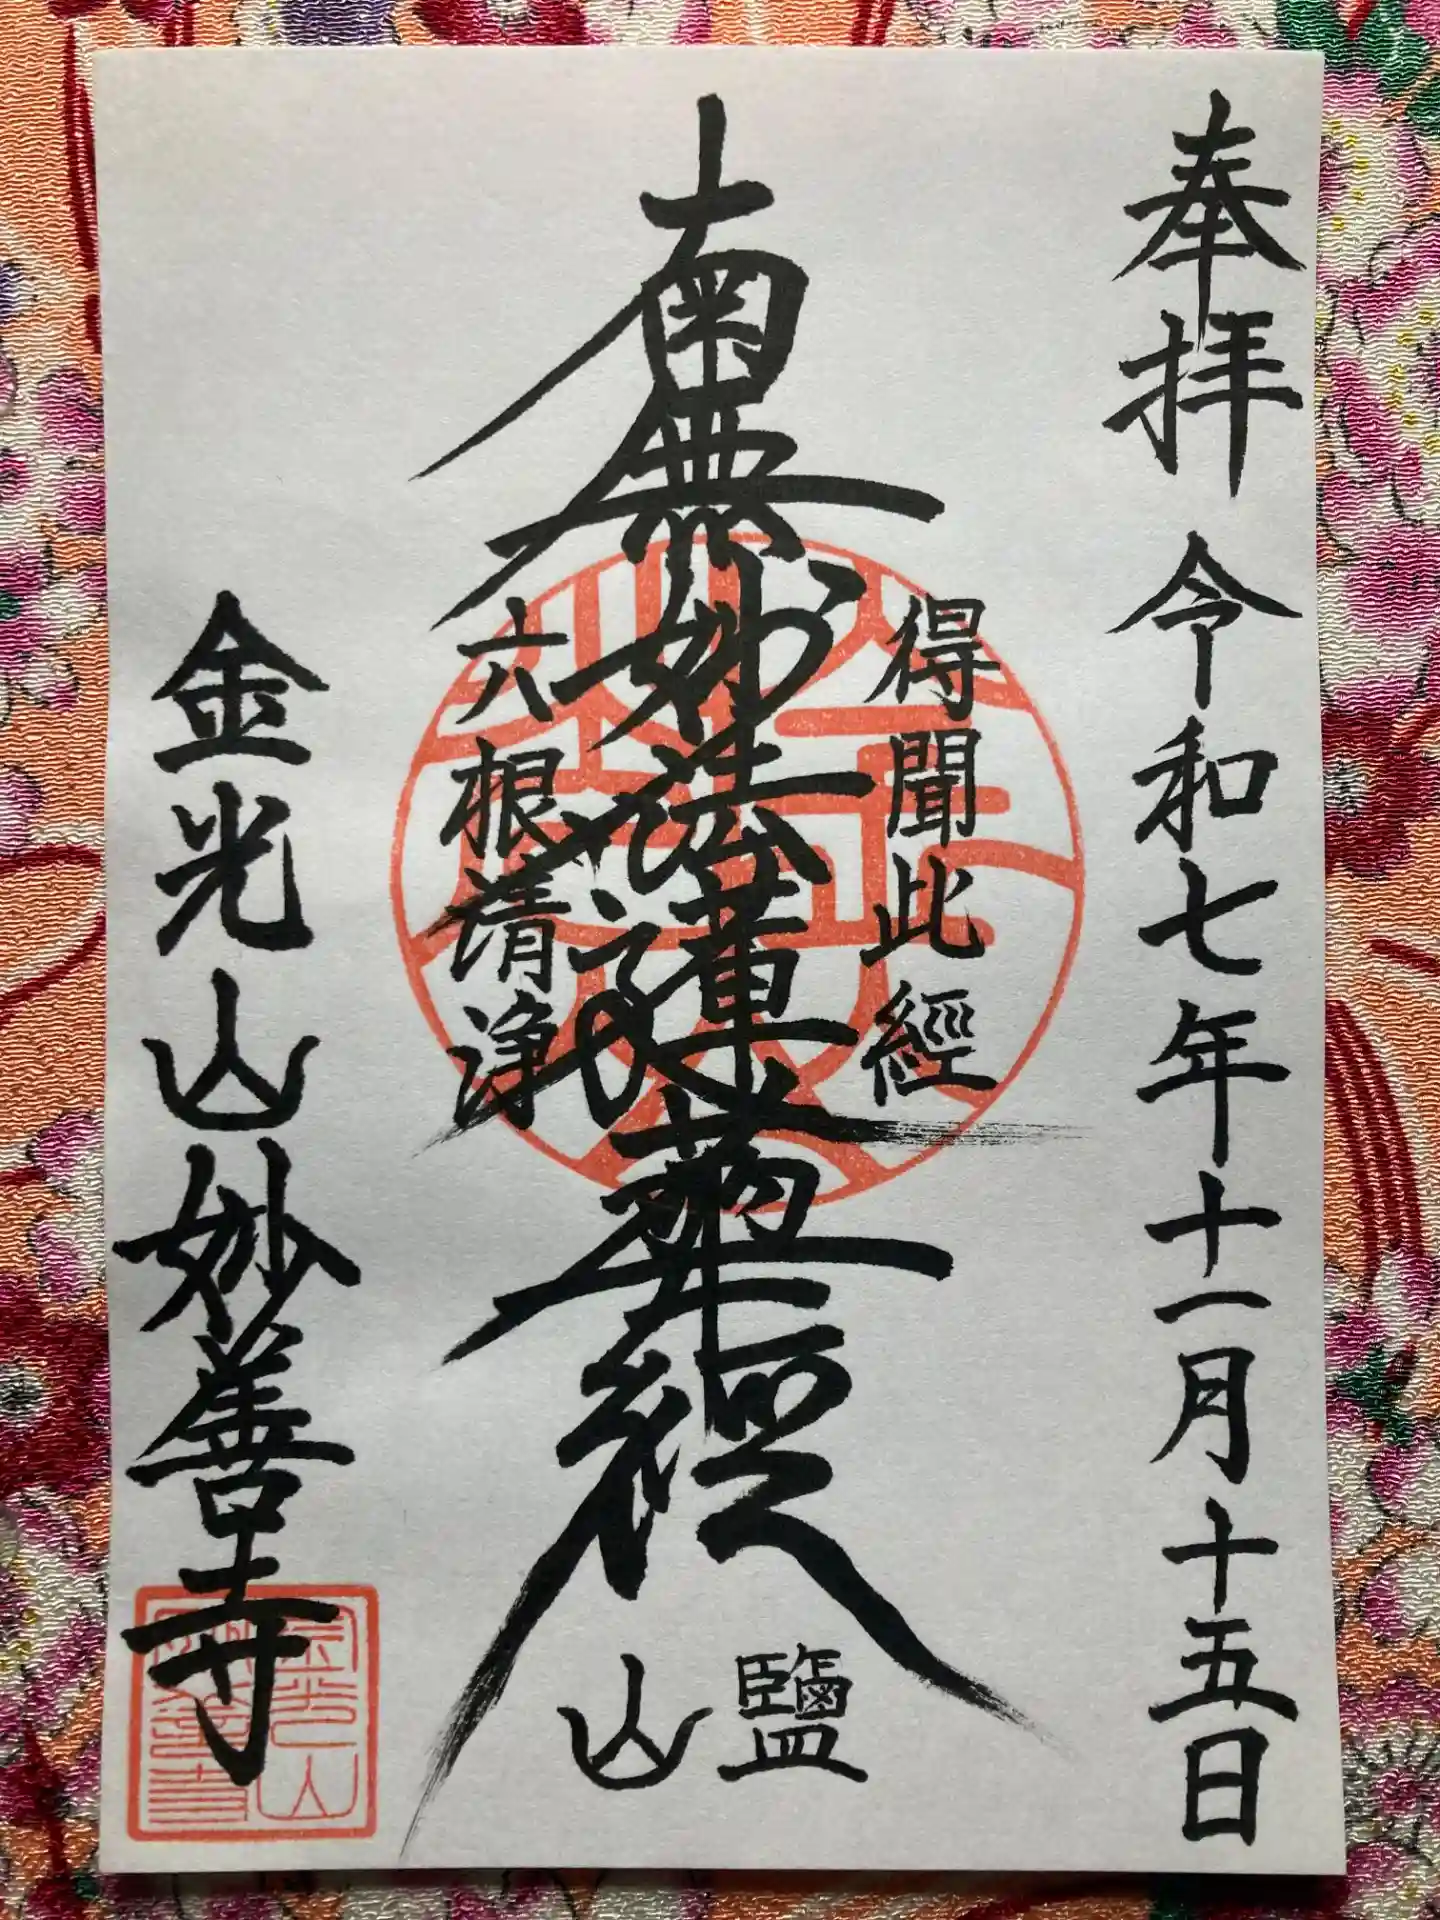 奉拝 令和七年十一月十五日
得聞此經
南無妙法蓮華經
六根清浄
鹽山
金光山妙善寺